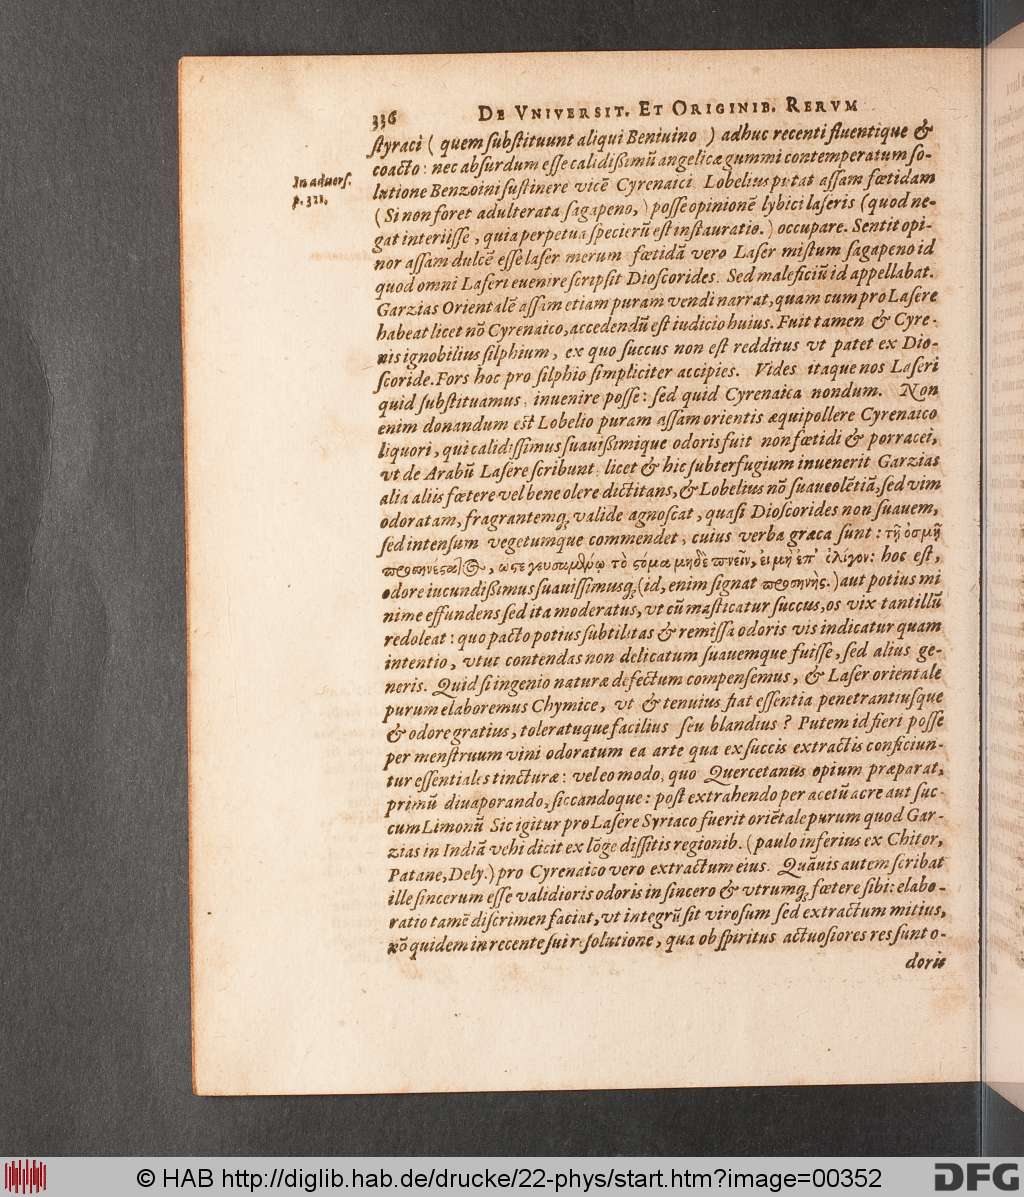 336 DE VNIVERSIT. ET ORIGINIB. RERVM
styraci ( quem substituunt aliqui Beniuino ) adhuc recenti fluentique &
coacto: nec absurdum esse calidißimũ angelicæ gummi contemperatum so-
In aduers.
p. 321.
lutione Benzoini sustinere vicẽ Cyrenaici Lobelius putat assam fœtidam
(Si non foret adulterata sagapeno,) posse opinionẽ lybici laseris (quod ne-
gat interiisse, quia perpetua specierũ est instauratio.) occupare. Sentit opi-
nor assam dulcẽ esse laser merum fœtidã vero Laser mistum sagapeno id
quod omni Laseri euenire scripsit Dioscorides. Sed maleficiũ id appellabat.
Garzias Orientalẽ assam etiam puram vendi narrat, quam cum pro Lasere
habeat licet nõ Cyrenaico, accedendũ est iudicio huius. Fuit tamen & Cyre-
nis ignobilius silphium, ex quo succus non est redditus vt patet ex Dio-
scoride. Fors hoc pro silphio simpliciter accipies. Vides itaque nos Laseri
quid substituamus inuenire posse: sed quid Cyrenaica nondum. Non
enim donandum est Lobelio puram assam orientis æquipollere Cyrenaico
liquori, qui calidissimus suauißimique odoris fuit non fœtidi & porracei,
vt de Arabũ Lasere scribunt: licet & hic subterfugium inuenerit Garzias
alia aliis fœtere vel bene olere dictitans, & Lobelius nõ suaueolẽtiã, sed vim
odoratam, fragrantemq; valide agnoscat, quasi Dioscorides non suauem,
sed intensum vegetumque commendet, cuius verba græca sunt: τῇ ὀσμῇ
προσηνέσατος, ὥςε γευσαμένῳ τὸ ςόμα μηδὲ πνεῖν, εἰ μὴ ἐπ' ὀλίγον: hoc est,
odore iucundißimus suauissimusq; (id, enim signat προσηνὴς.) aut potius mi
nime effundens sed ita moderatus, vt cũ masticatur succus, os vix tantillũ
redoleat: quo pacto potius subtilitas & remissa odoris vis indicatur quam
intentio, vtut contendas non delicatum suauemque fuisse, sed alius ge-
neris. Quid si ingenio naturæ defectum compensemus, & Laser orientale
purum elaboremus Chymice, vt & tenuius fiat essentia penetrantiusque
& odore gratius, toleratuque facilius seu blandius? Putem id fieri posse
per menstruum vini odoratum ea arte qua ex succis extractis conficiun-
tur essentiales tincturæ: vel eo modo, quo Quercetanus opium præparat,
primũ diuaporando, siccandoque: post extrahendo per acetũ acre aut suc-
cum Limonũ Sic igitur pro Lasere Syriaco fuerit oriẽtale purum quod Gar-
zias in Indiã vehi dicit ex lõge dissitis regionib. (paulo inferius ex Chitor,
Patane, Dely.) pro Cyrenaico vero extractum eius. Quãuis autem scribat
ille sincerum esse validioris odoris in sincero & vtrumq; fœtere sibi: elabo-
ratio tamẽ discrimen faciat, vt integrũ sit virosum sed extractum mitius,
nõ quidem in recente sui resolutione, qua ob spiritus actuosiores res sunt o-
doris
© HAB http://diglib.hab.de/drucke/22-phys/start.htm?image=00352
DFG